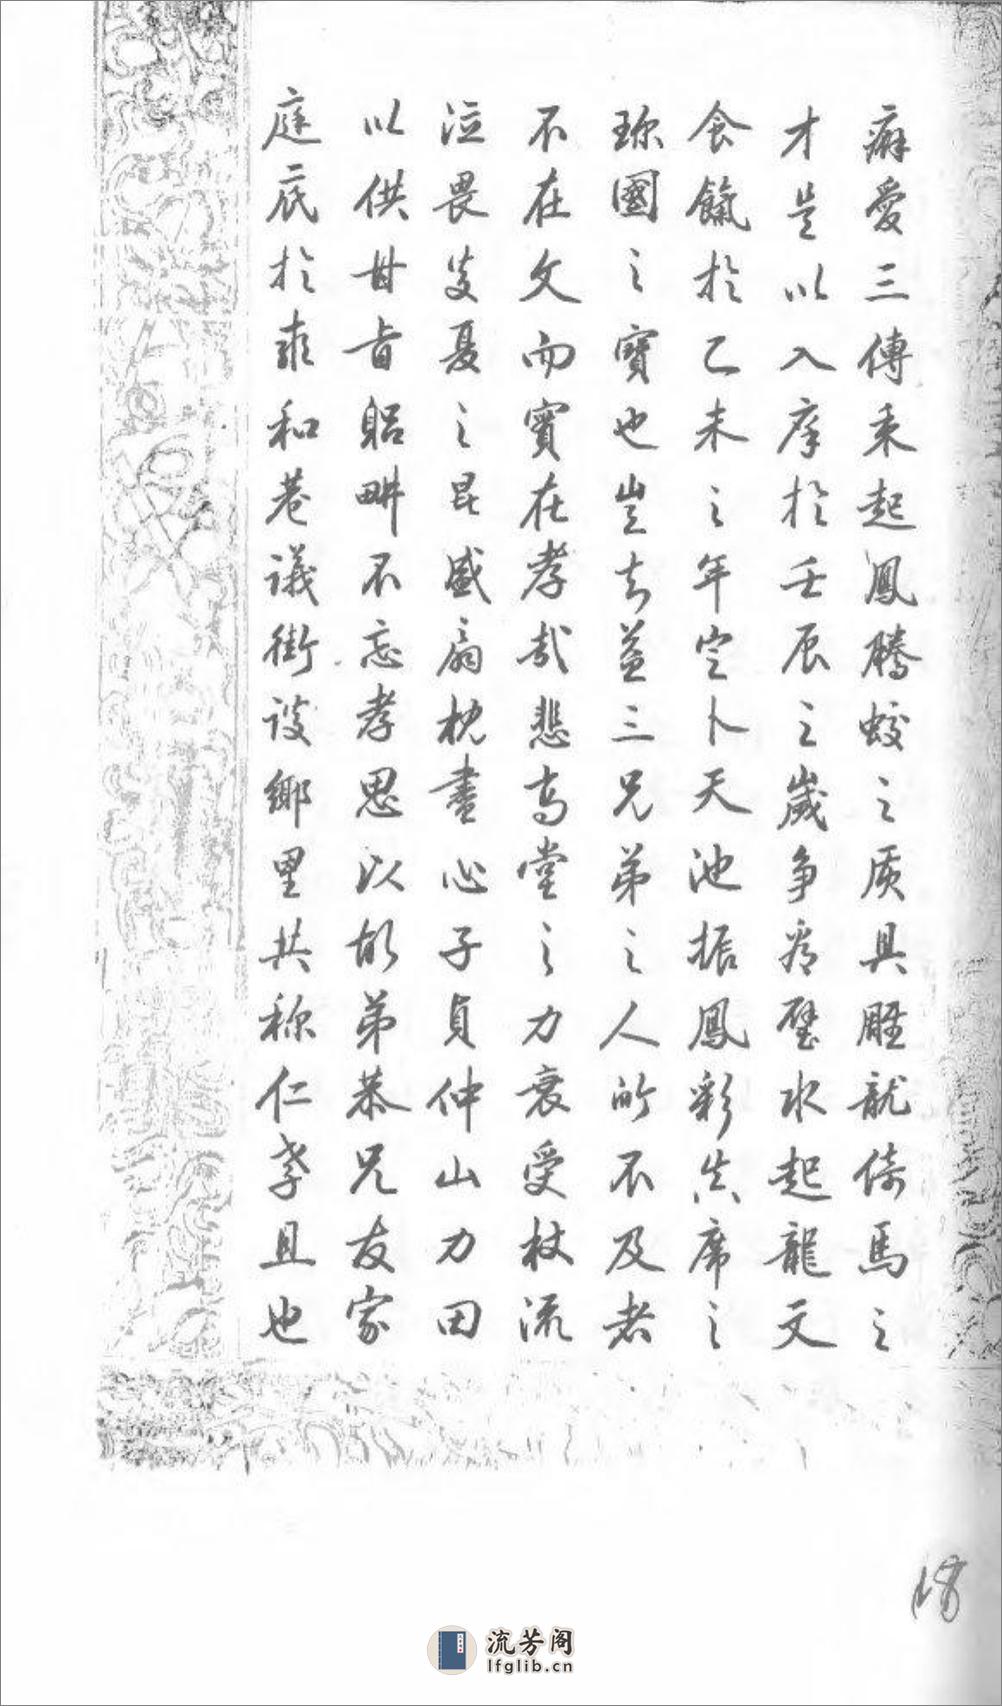 癖愛三傳秉起鳳騰蛟之质具雕龍倚馬之
才是以入庠於壬辰之歲争看璧水起龍文
食餼於乙未之年定卜天池振鳳彩真席之
珎國之寶也豈去益三兄弟之人所不及者
不在文而實在孝哉悲高堂之力衰受杖流
泣畏炎夏之昆盛扇枕盡心子貞仲山力田
以供甘旨躬畊不忘孝思以故弟恭兄友家
庭底於雍和巷議街談鄉里共称仁孝且也
18
流芳阁
lfglib.cn